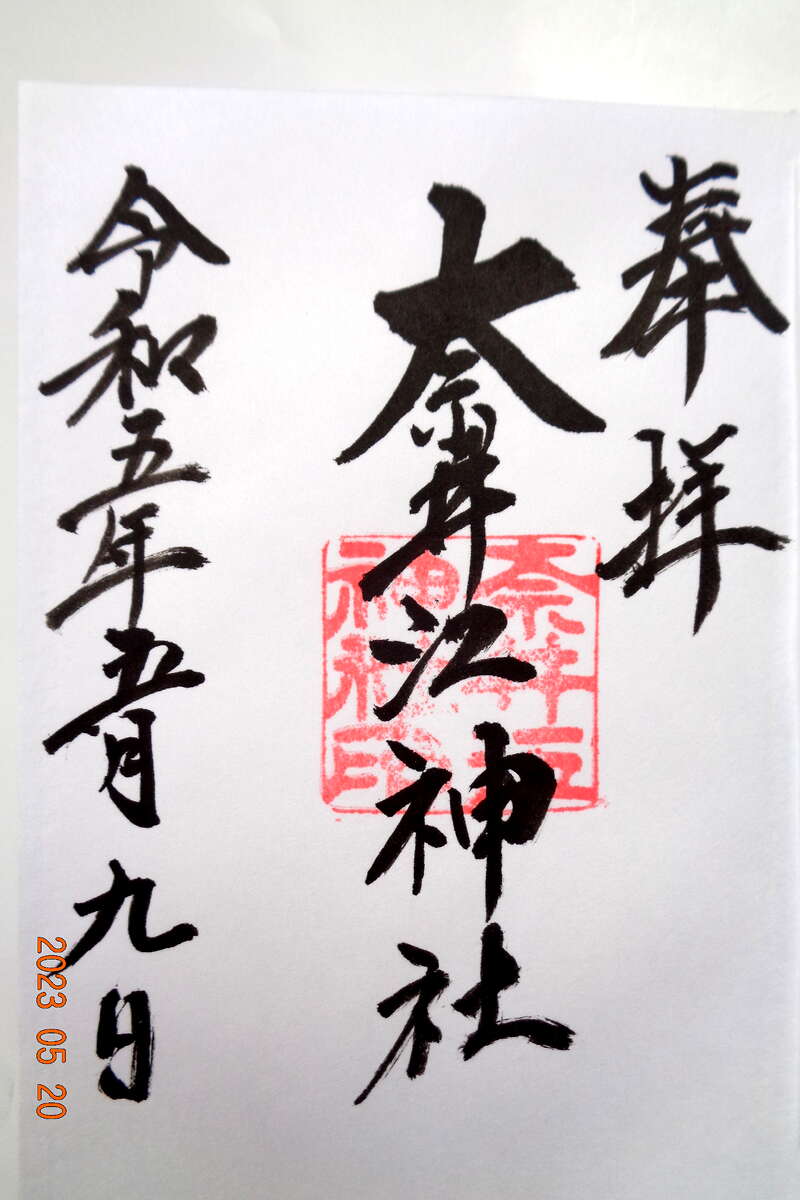 奉拝
奈井江神社
奈井江
神社印
令和五年五月九日
2023 05 20